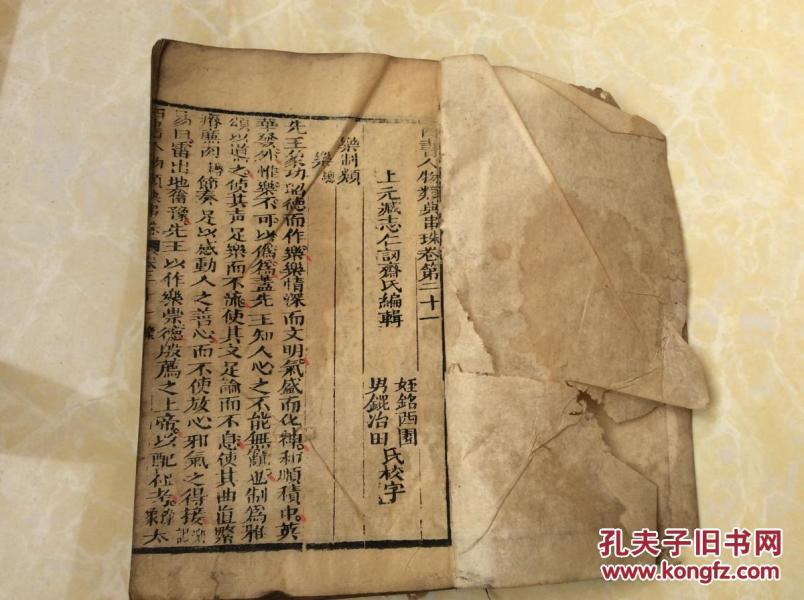 四書人物類典串珠卷第二十一
上元臧志仁訒齋氏編輯
姪銘西園
男錕冶田
氏校字
樂制類
樂總
先王象功昭德而作樂樂情深而文明氣盛而化神和順積中英
華發外惟樂不可以僞爲蓋先王知人心之不能無亂也制爲雅
頌以道之使其声足樂而不流使其文足論而不息使其曲直繁
瘠廉肉節奏足以感動人之善心而不使放心邪氣之得接樂
易曰雷出地奮豫先王以作樂崇德殷薦之上帝以配祖考豫象 太
孔夫子旧书网
www.kongfz.com